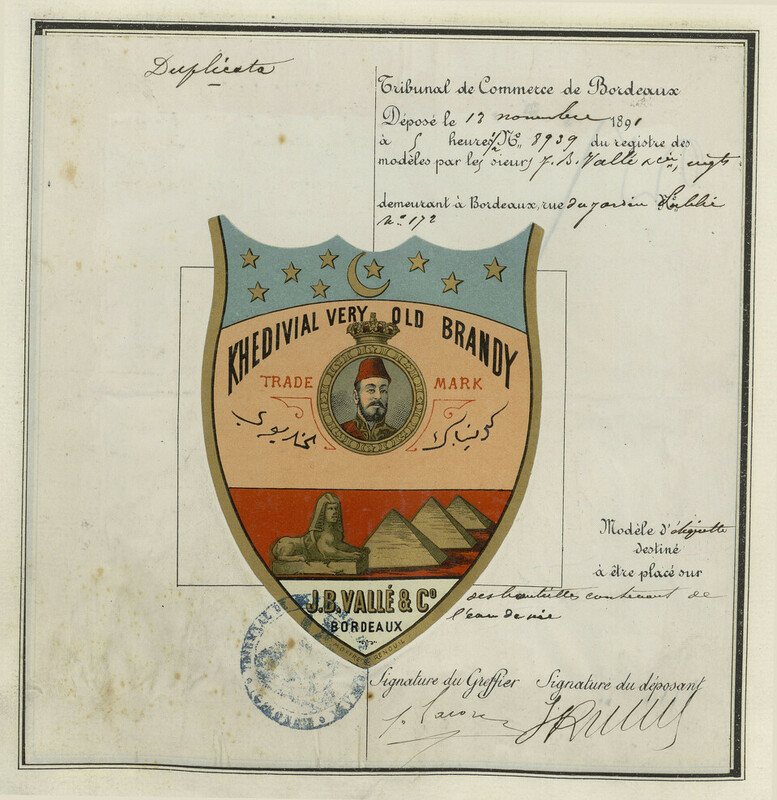 Duplicata
Tribunal de Commerce de Bordeaux
Déposé le 12 novembre 1891
à 5 heures ½ No. 8939 du registre des
modèles par les sieurs J. B. Vallé & Cie,
demeurant à Bordeaux, rue du jardin Public
No. 172
KHEDIVIAL VERY OLD BRANDY
TRADE MARK
كونياك الخديوي
J.B. VALLÉ & Co
BORDEAUX
Modèle d'étiquette
destiné
à être placé sur
des bouteilles contenant de
l'eau de vie
Signature du Greffier Signature du déposant